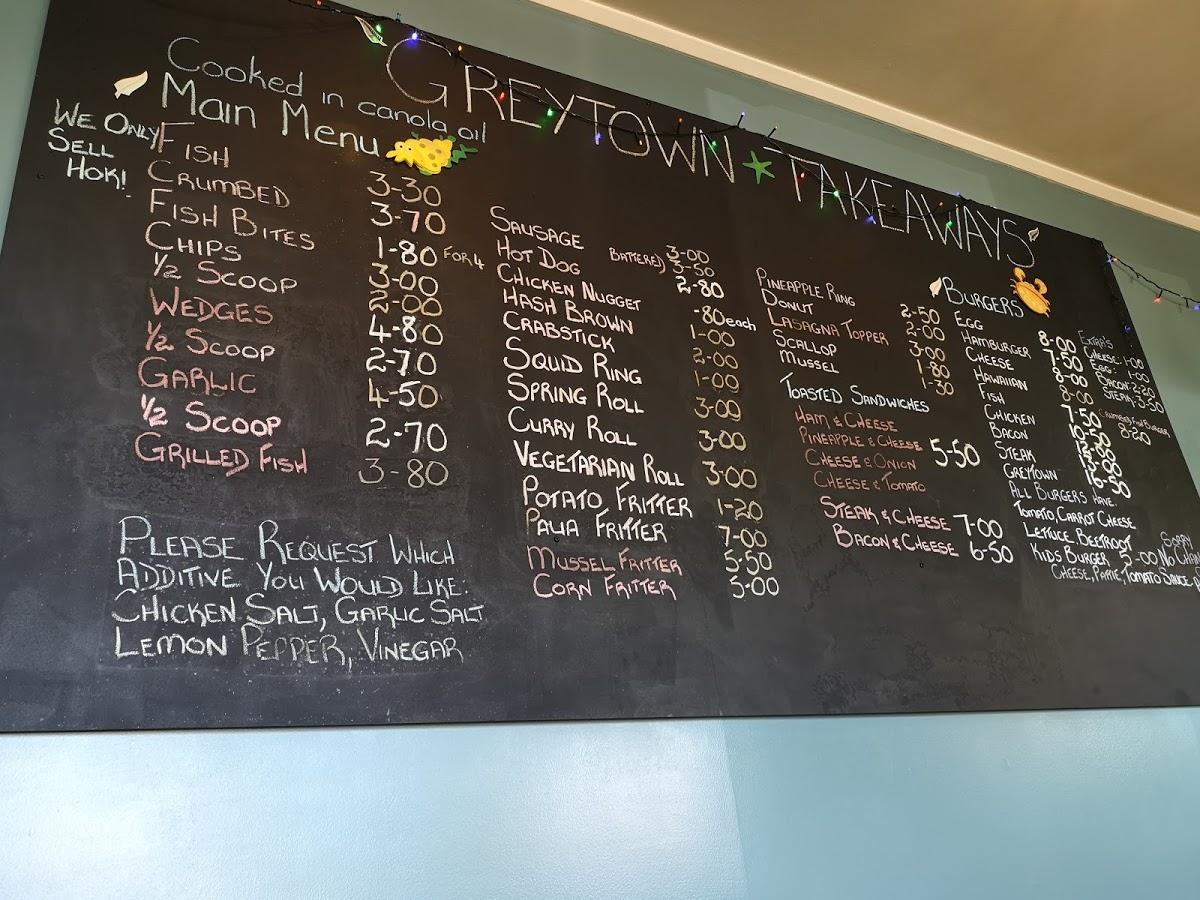 GREYTOWN TAKEAWAYS
Cooked in canola oil
Main Menu
WE ONLY
SELL
HOKI!
FISH 3-30
CRUMBED 3-70
FISH BITES 1-80 FOR 4
CHIPS 3-00
½ SCOOP 2-00
WEDGES 4-80
½ SCOOP 2-70
GARLIC 4-50
½ SCOOP 2-70
GRILLED FISH 3-80
PLEASE REQUEST WHICH
ADDITIVE YOU WOULD LIKE:
CHICKEN SALT, GARLIC SALT
LEMON PEPPER, VINEGAR
SAUSAGE 3-00
BATTERED) 3-50
HOT DOG 2-80
CHICKEN NUGGET -80each
HASH BROWN 1-00
CRABSTICK 2-00
SQUID RING 1-00
SPRING ROLL 3-00
CURRY ROLL 3-00
VEGETARIAN ROLL 3-00
POTATO FRITTER 1-20
PAUA FRITTER 7-00
MUSSEL FRITTER 5-50
CORN FRITTER 5-00
PINEAPPLE RING 2-50
DONUT 2-00
LASAGNA TOPPER 3-00
SCALLOP 1-80
MUSSEL 1-30
TOASTED SANDWICHES
HAM & CHEESE
PINEAPPLE & CHEESE 5-50
CHEESE & ONION
CHEESE & TOMATO
STEAK & CHEESE 7-00
BACON & CHEESE 6-50
BURGERS
EGG 8-00
HAMBURGER 7-50
CHEESE 8-00
HAWAIIAN 8-00
FISH 7-50
CHICKEN
BACON
STEAK
GREYTOWN 16-50
ALL BURGERS HAVE
TOMATO, CARROT CHEESE
LETTUCE BEETROOT
KIDS BURGER 5-00
CHEESE, PATTIE, TOMATO SAUCE
EXTRA'S
CHEESE: 1-00
EGG:
BACON: 2-20
STEAK: 3-50
CRUMBED FISH BURGER
8-20
SORRY
NO